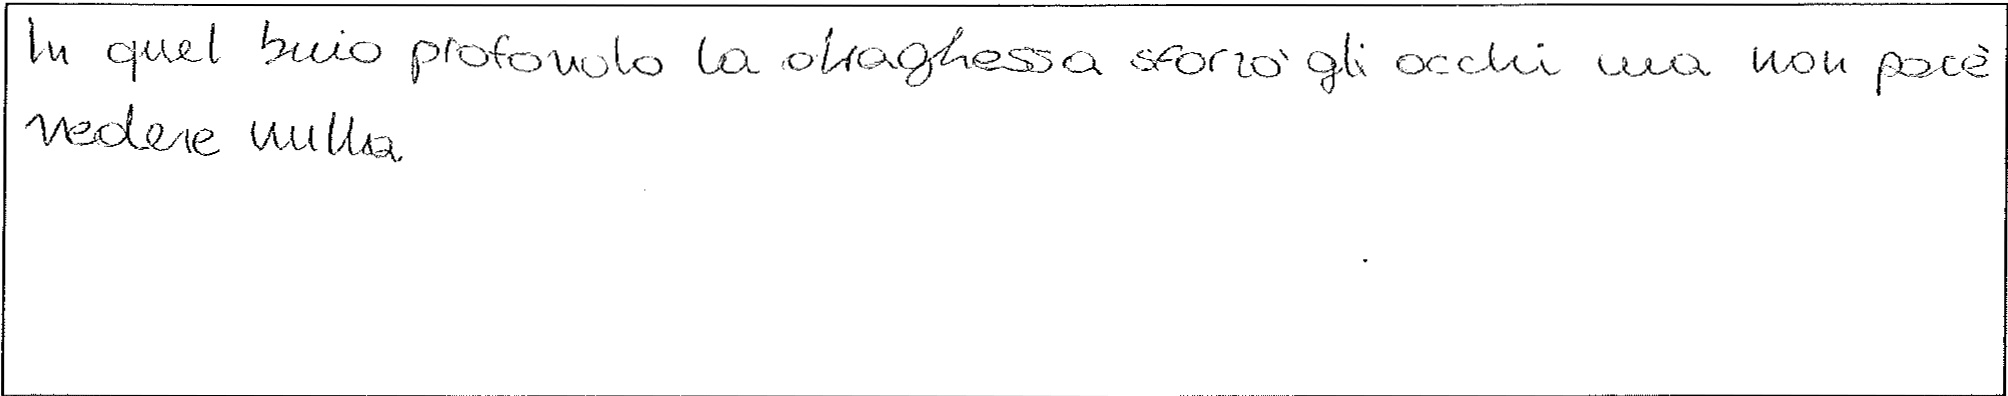 In quel buio profondo la draghessa sforzò gli occhi ma non pocè
vedere nulla.